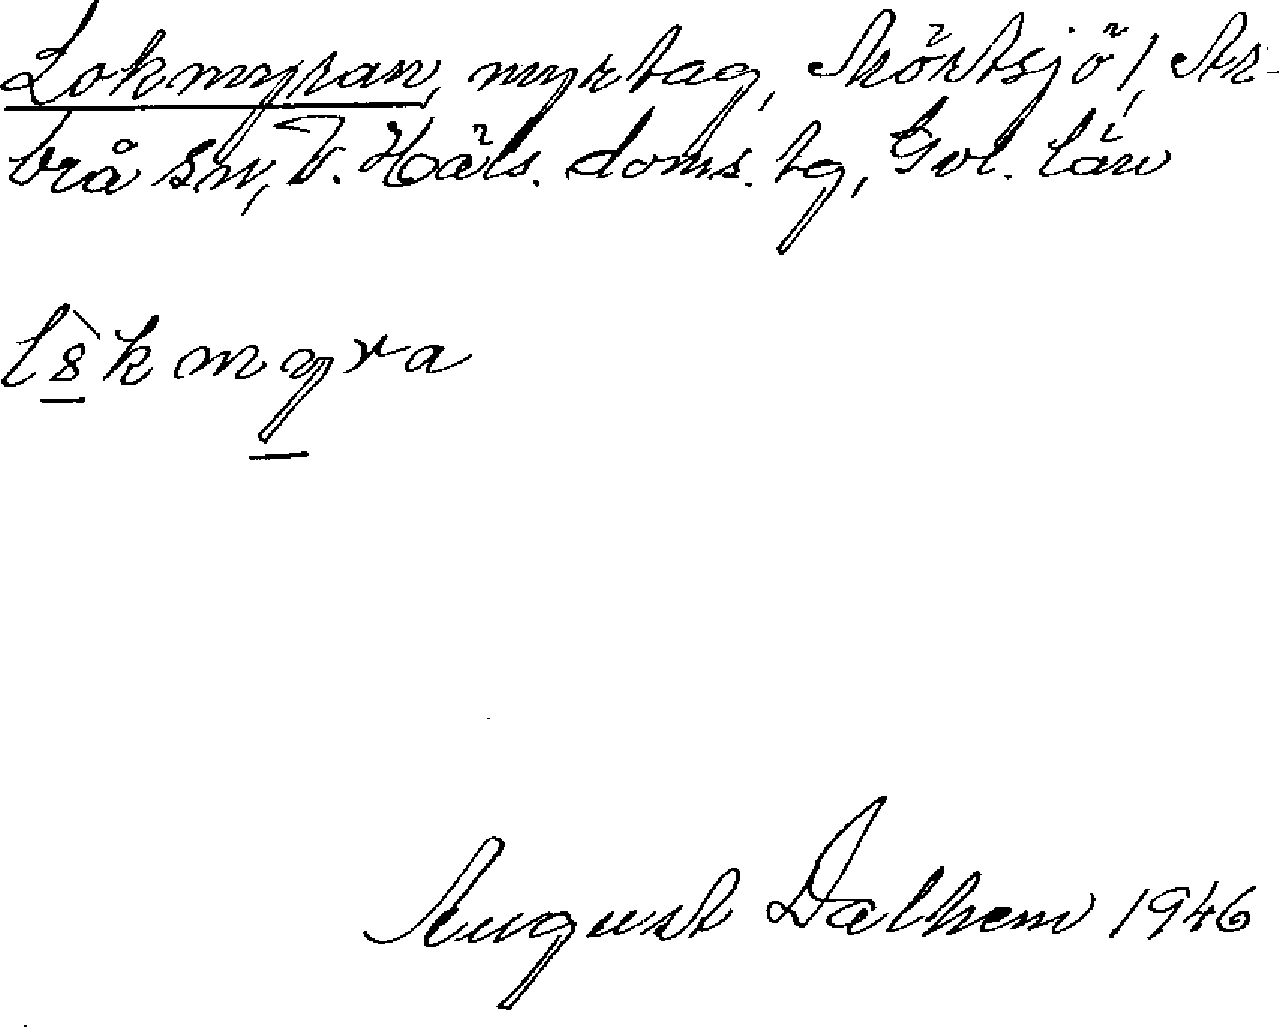 Lokmyran, myrtag, Mörtsjö, Ar-
brå sn, V. Häls. doms. tg, Gvl. län
myra
August Dalhem 1946